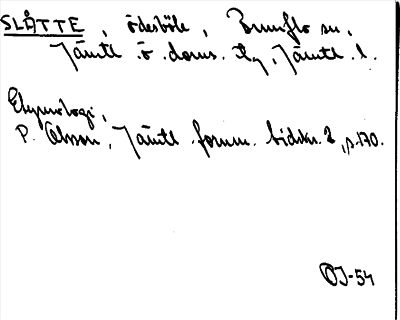 SLÅTTE, ödesböle, Brunflo sn,
Jämtl. ö. doms. tly, Jämtl. l.
Etymologi,
P. Olsson, Jämtl. fornm. tidskr. 2, s. 170.
OJ-54